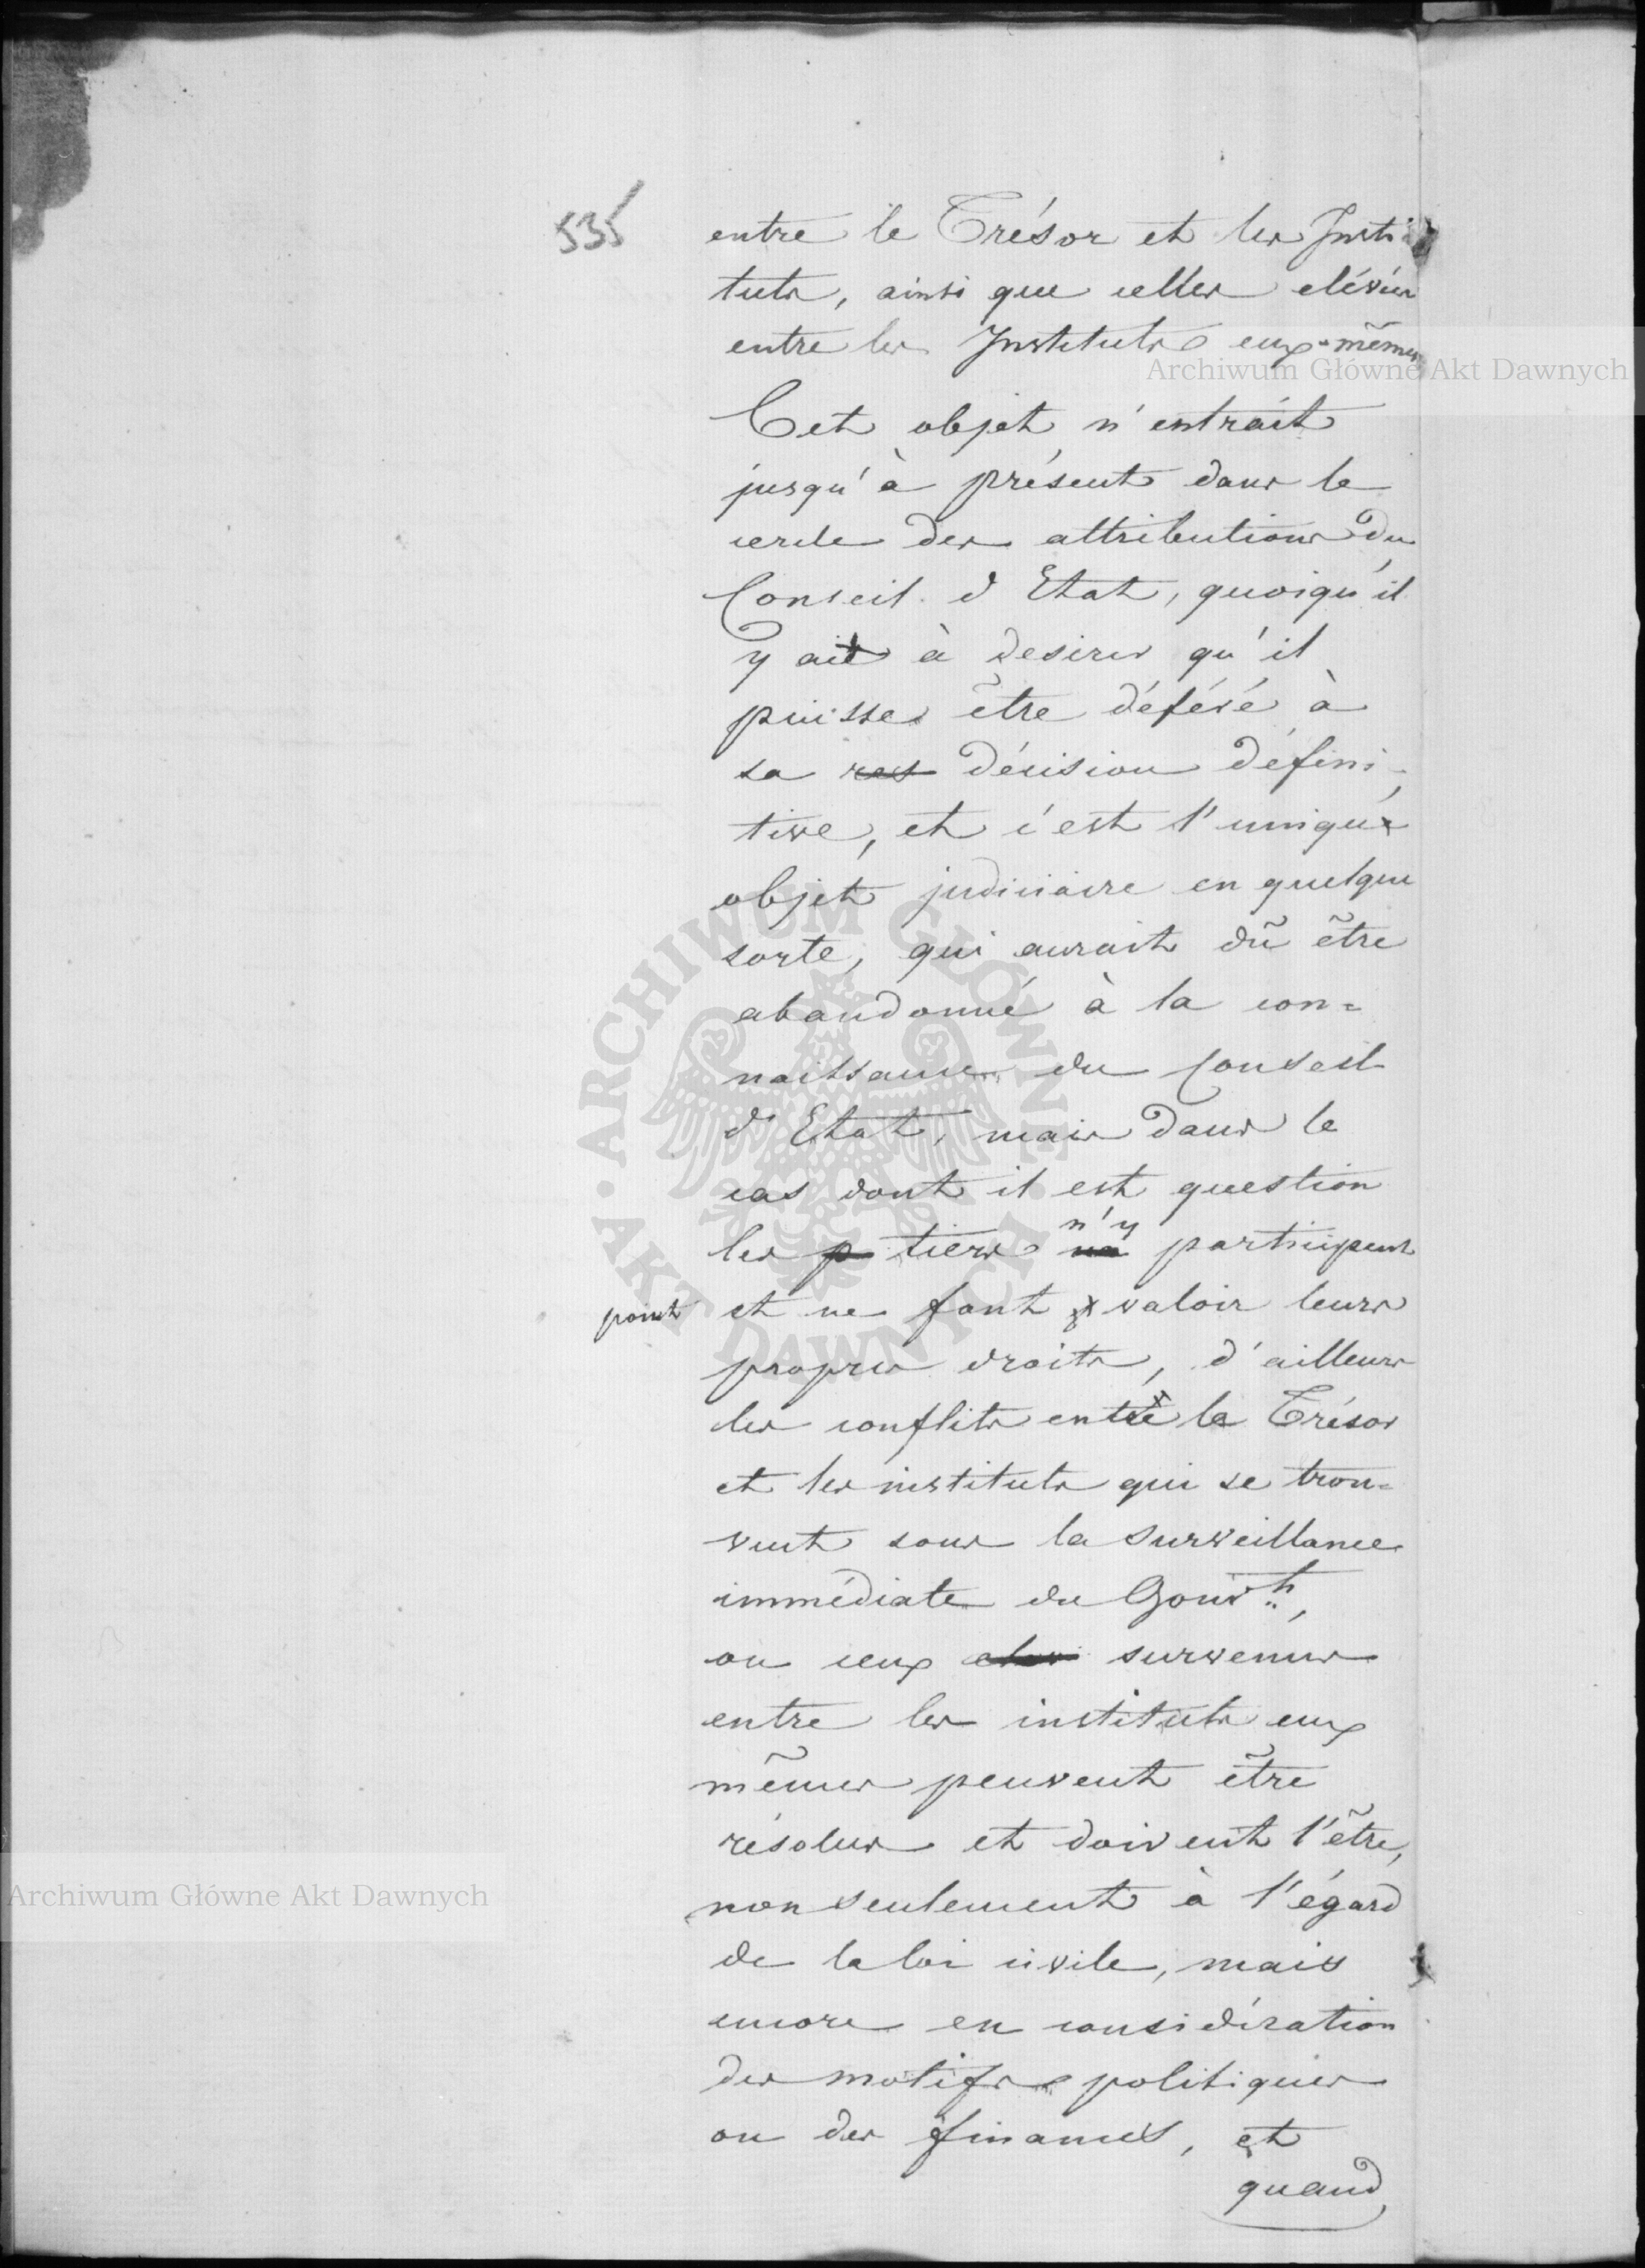 535
entre le Trésor et les Insti-
tuts, ainsi que celles elévées
entre les Instituts eux-mêmes
Archiwum Główne Akt Dawnych
Cet objet n'entrait
jusqu'à présent dans le
cercle des attributions du
Conseil d'Etat, quoiqu'il
y ait à desirer qu'il
puisse être déféré à
sa res décision défini-
tive, et c'est l'unique
objet judiciaire en quelque
sorte, qui aurait dû être
abandonné à la con=
naissance du Conseil
d'Etat, mais dans le
cas dont il est question
les p tiers n'y participent
point et ne font valoir leurs
propres droits, d'ailleurs
les conflits entre le Trésor
et les instituts qui se trou=
vent sous la surveillance
immédiate du Gouvt,
ou ceux survenus
entre les instituts eux
mêmes peuvent être
résolus et doivent l'être,
non seulement à l'égard
de la loi civile, mais
encore en considération
des motifs politiques
ou des finances, et
quand
ARCHIWUM GŁÓWNE AKT DAWNYCH
Archiwum Główne Akt Dawnych